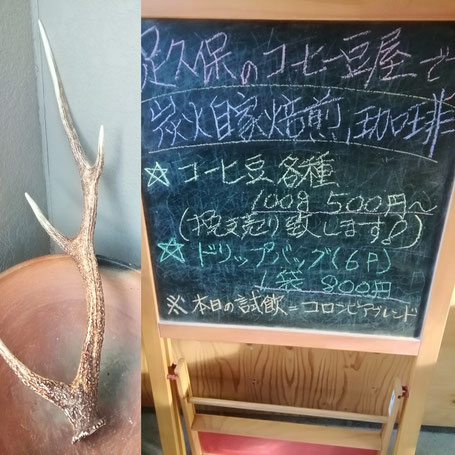 足久保のコーヒー豆屋で
炭火自家焙煎珈琲
☆コーヒ豆各種
100g 500円〜
(挽き売り致します♪)
☆ドリップバッグ(6P)
1袋 800円
※本日の試飲=コロンビアブレンド